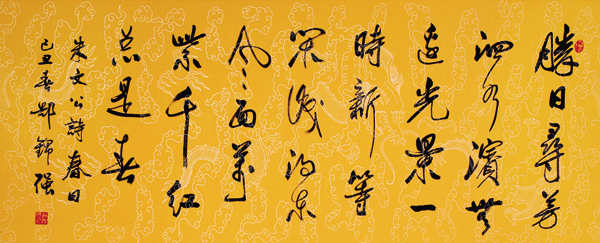 勝日尋芳
泗水濱無
邊光景一
時新等
閒識得東
風面萬
紫千紅
總是春
朱文公詩春日
己丑春錦强